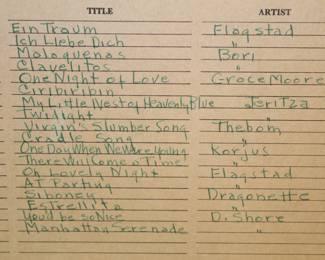 TITLE ARTIST
Ein Traum Flagstad
Ich Liebe Dich "
Malaguenas Bori
Clavelitos "
One Night of Love Grace Moore
Ciribiribin "
My Little Nest of Heavenly Blue Jeritza
Twilight "
Virgin's Slumber Song Thebom
Cradle Song "
One Day When We Were Young Korjus
There Will Come a Time "
Oh Lovely Night Flagstad
At Parting "
Siboney Dragonette
Estrellita "
You'd be so Nice D. Shore
Manhattan Serenade "